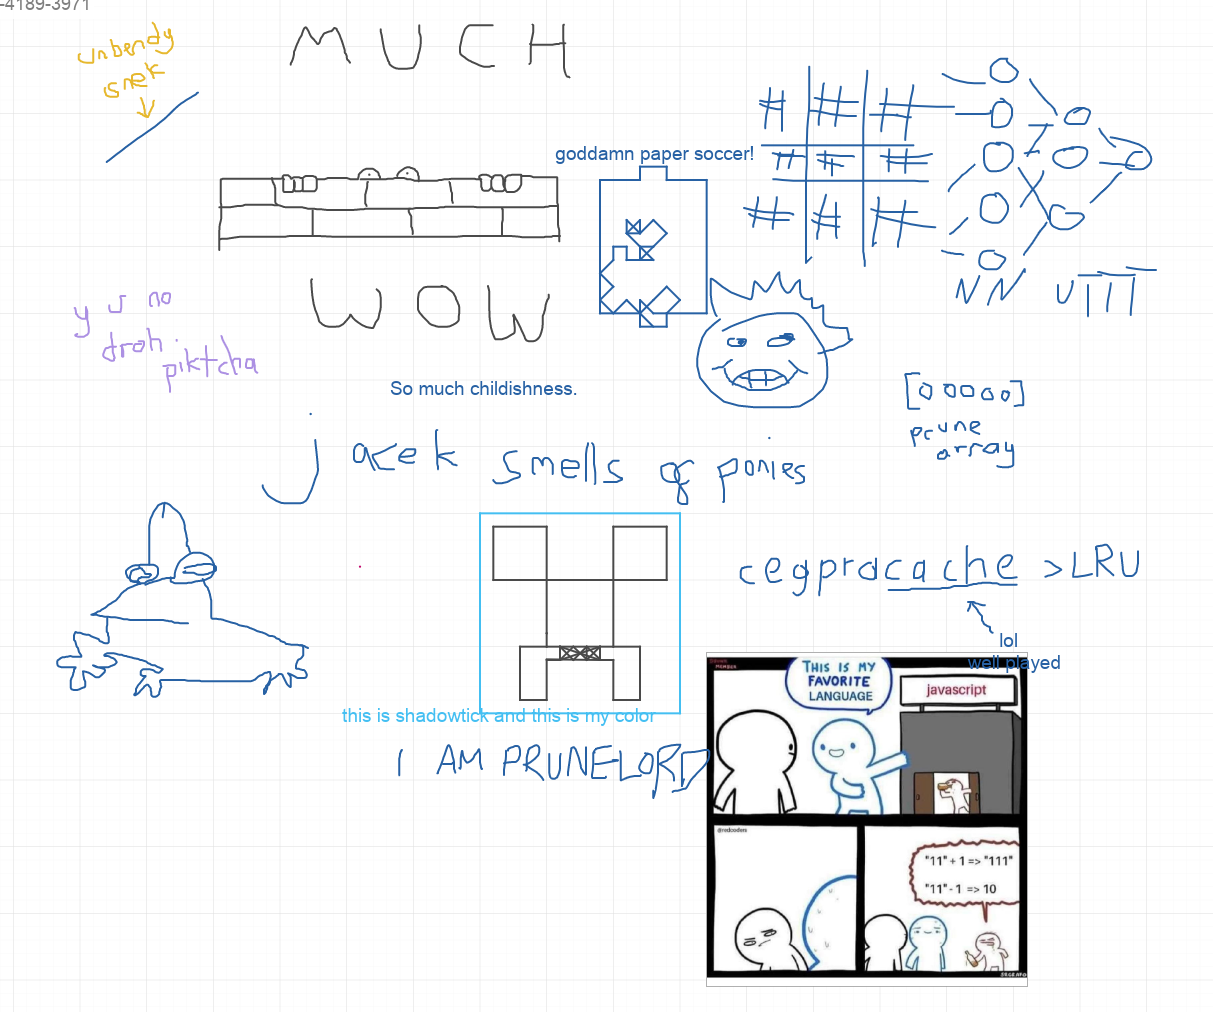 -4189-3971
unbendy
snek
MUCH
goddamn paper soccer!
NN UTTT
WOW
y u no
droh
piktcha
So much childishness.
[00000]
prune
array
jacek smells of ponies
cegpracache >LRU
lol
well played
this is shadowtick and this is my color
I AM PRUNELORD
MEMBER
THIS IS MY
FAVORITE
LANGUAGE
javascript
@redcoders
"11" + 1 => "111"
"11" - 1 => 10
SRGRAFO